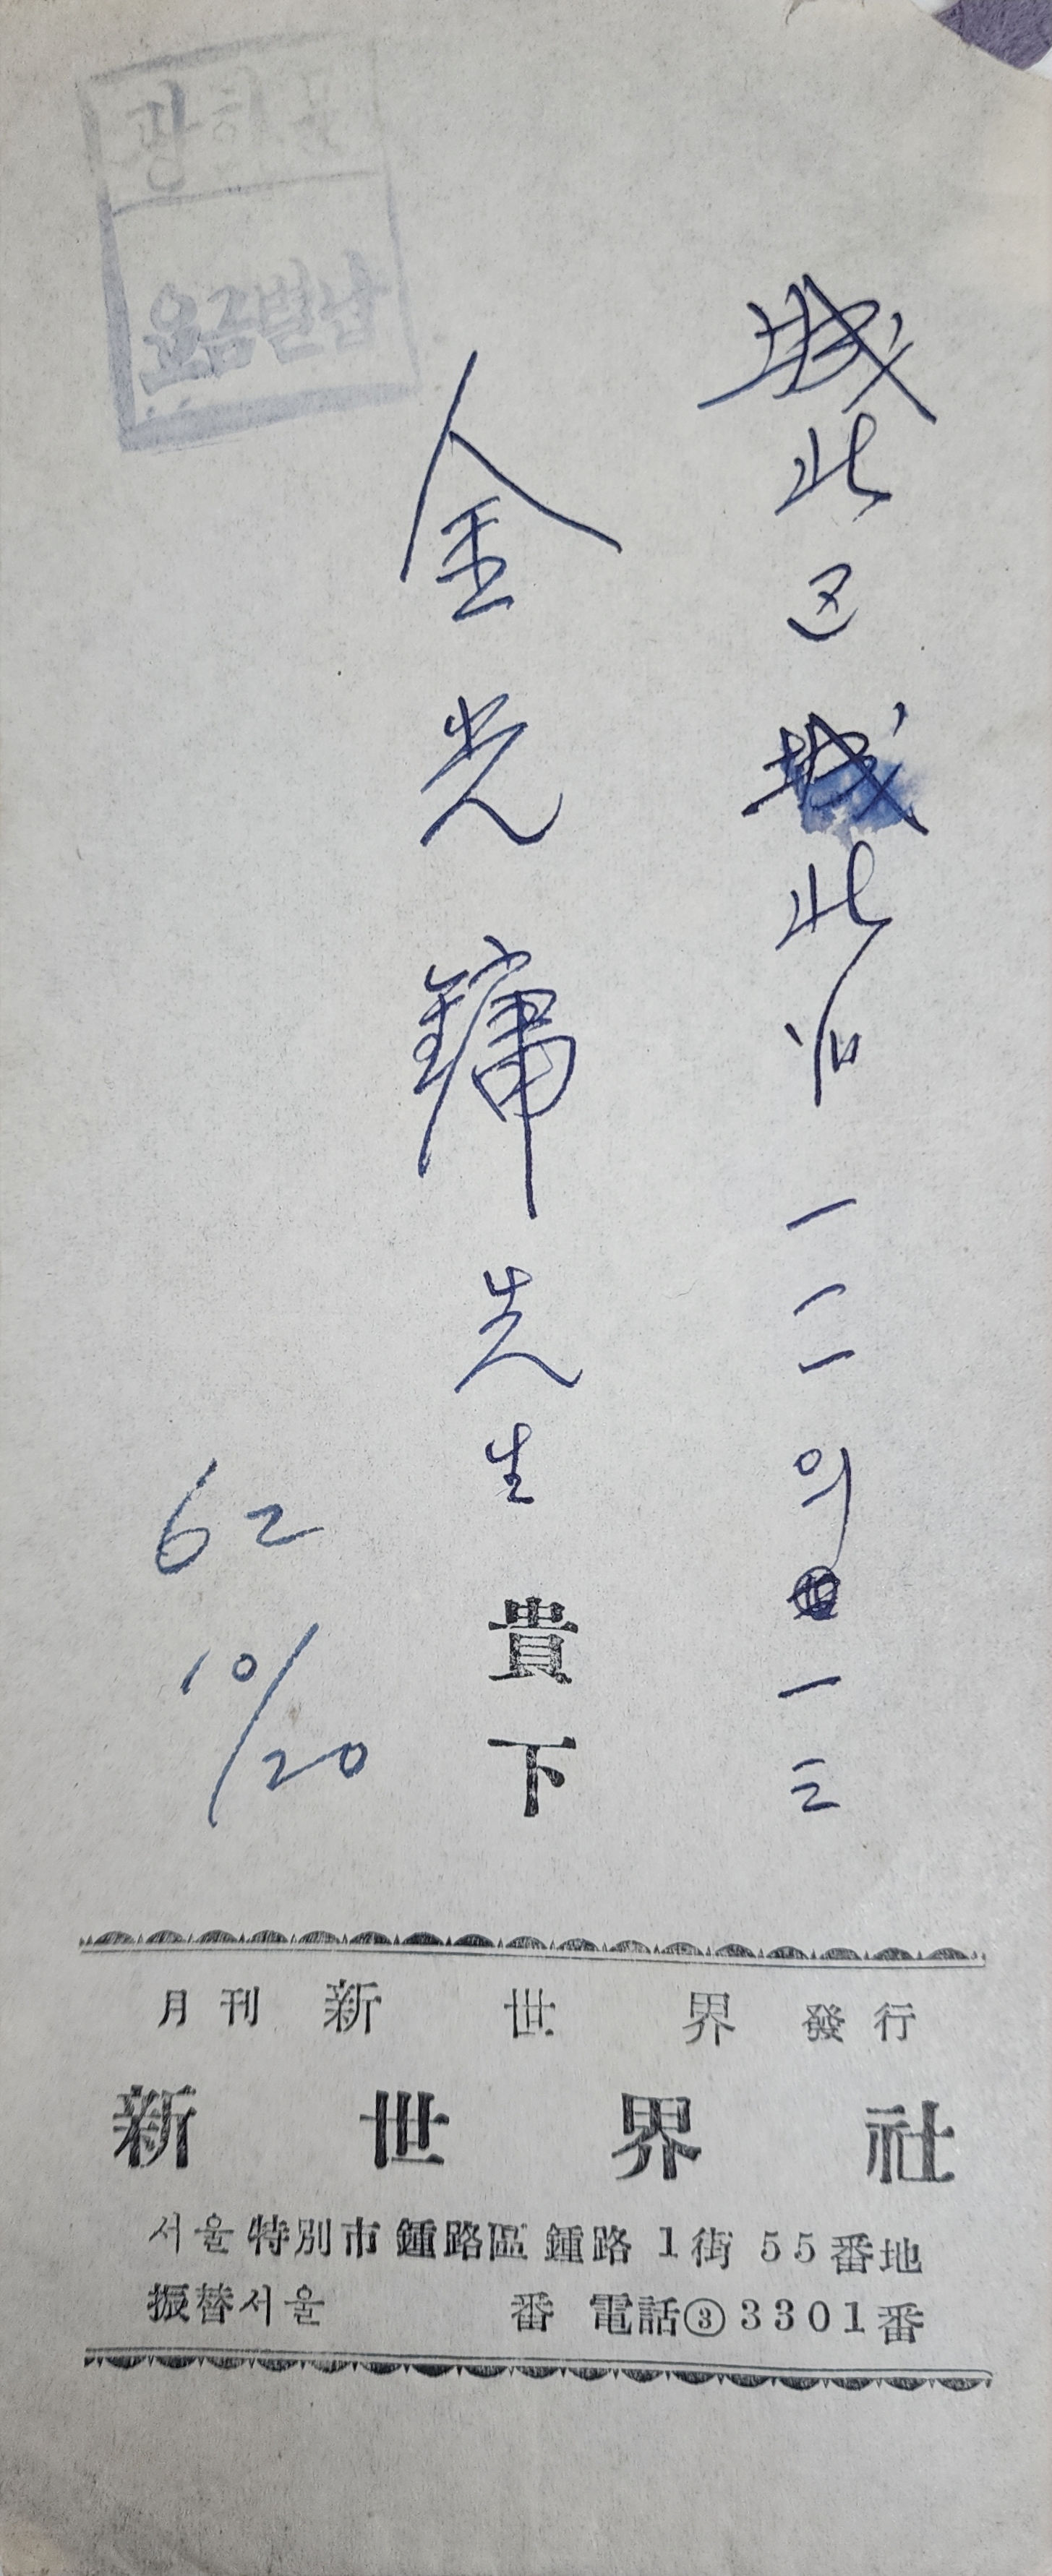 광화문
요금별납
城北区 城北洞 一二의 一三
金光鏞先生 貴下
62
10/20
月刊 新世界 發行
新世界社
서울特別市 鍾路區 鍾路 1街 55番地
振替서울 番 電話③3301番